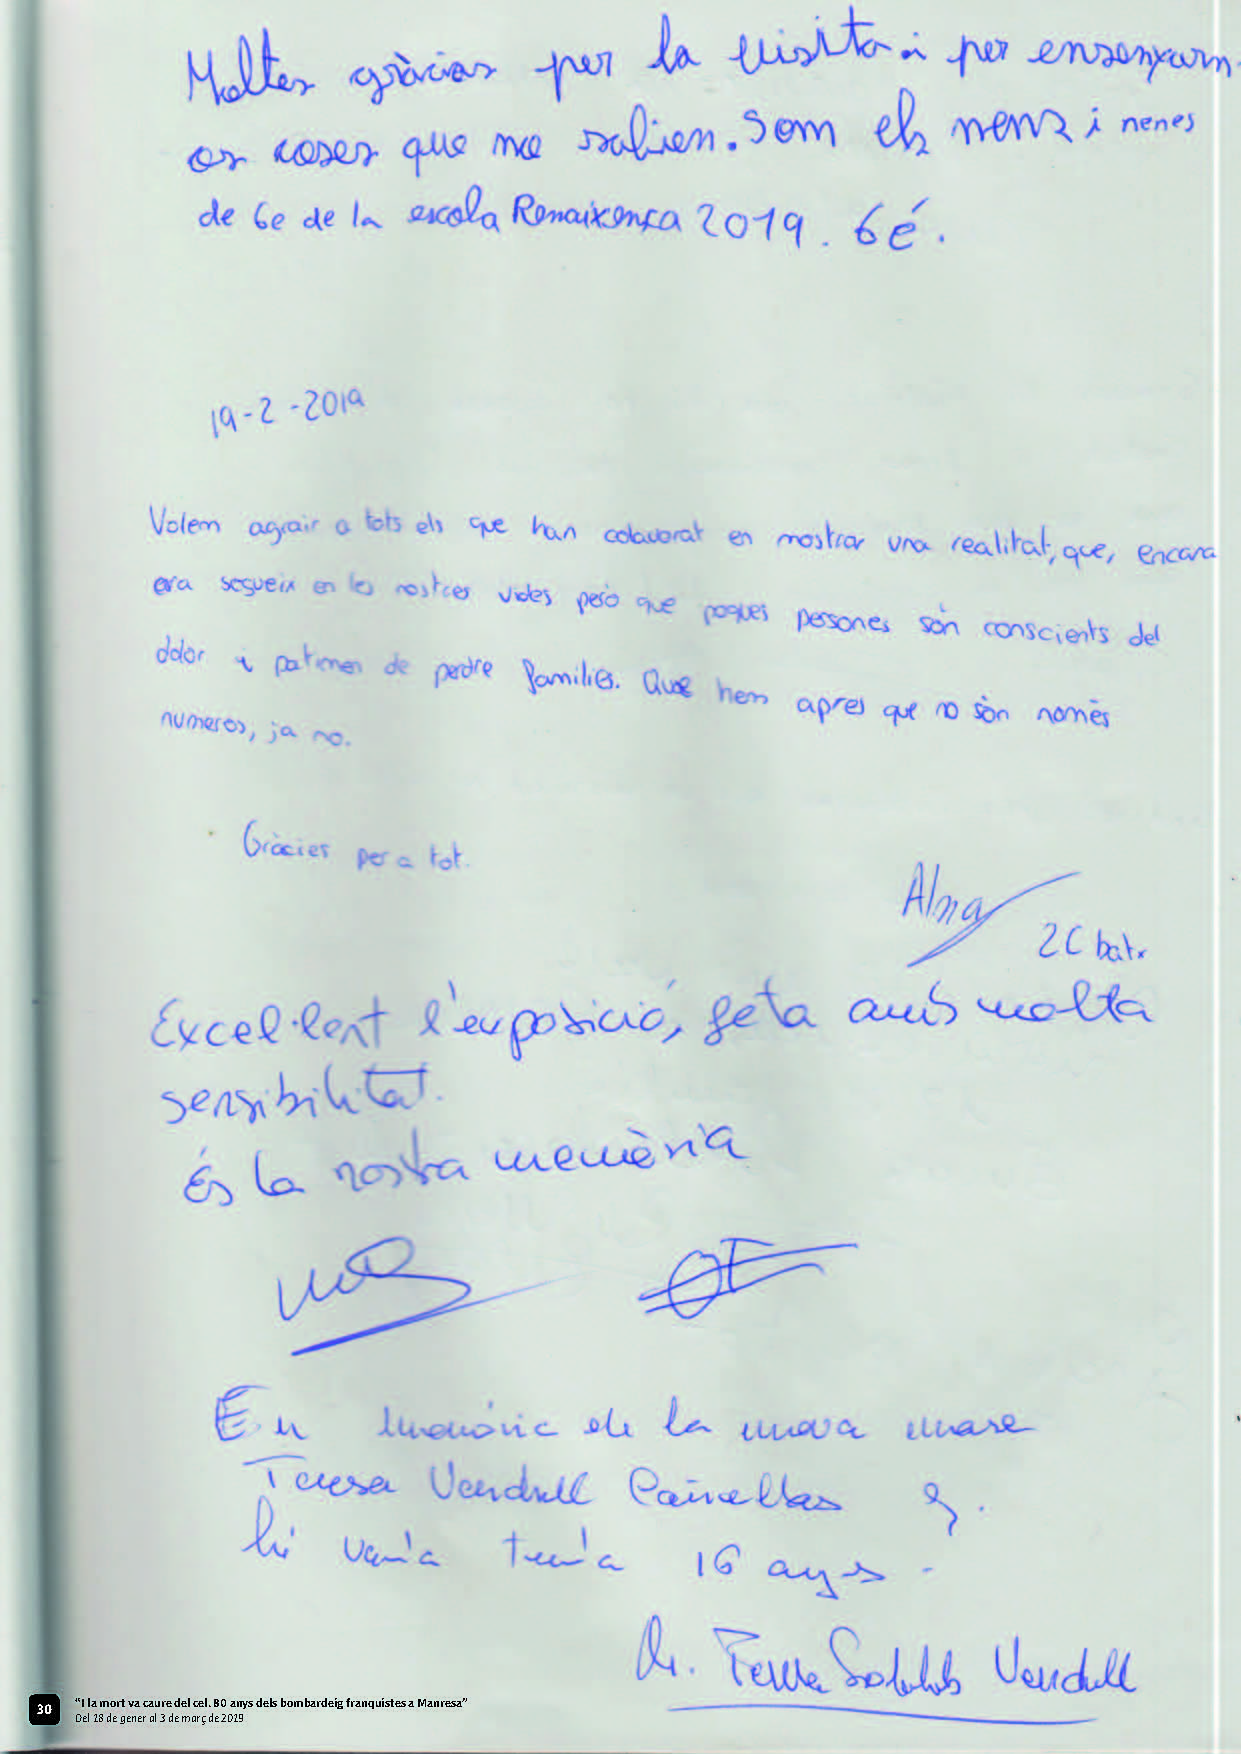 Moltes gràcias per la visita i per ensenyarn-
os coses que no sabien. Som els nens i nenes
de 6e de la escola Renaixença 2019. 6é.
19-2-2019
Volem agrair a tots els que han colavorat en mostrar una realitat, que, encara
ara segueix en les nostres vides però que poques persones són conscients del
dolor i patimen de perdre famílies. Que hem apres que no sòn només
numeros, ja no.
Gràcies per a tot.
Alna
2C batx
Excel·lent l'exposició, feta amb molta
sensibilitat.
és la nostra memèria
En memòria de la meva mare
Teresa Vendrell
hi vivia tenia 16 anys.
Vendrell
30
“I la mort va caure del cel. 80 anys dels bombardeig franquistes a Manresa”
Del 18 de gener al 3 de març de 2019